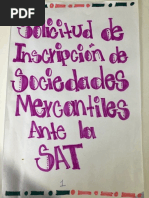 Solicitud de
Inscripción de
Sociedades
Mercantiles
Ante la
SAT
1